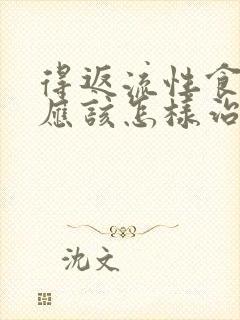 得返流性食
應該怎樣治
沈文